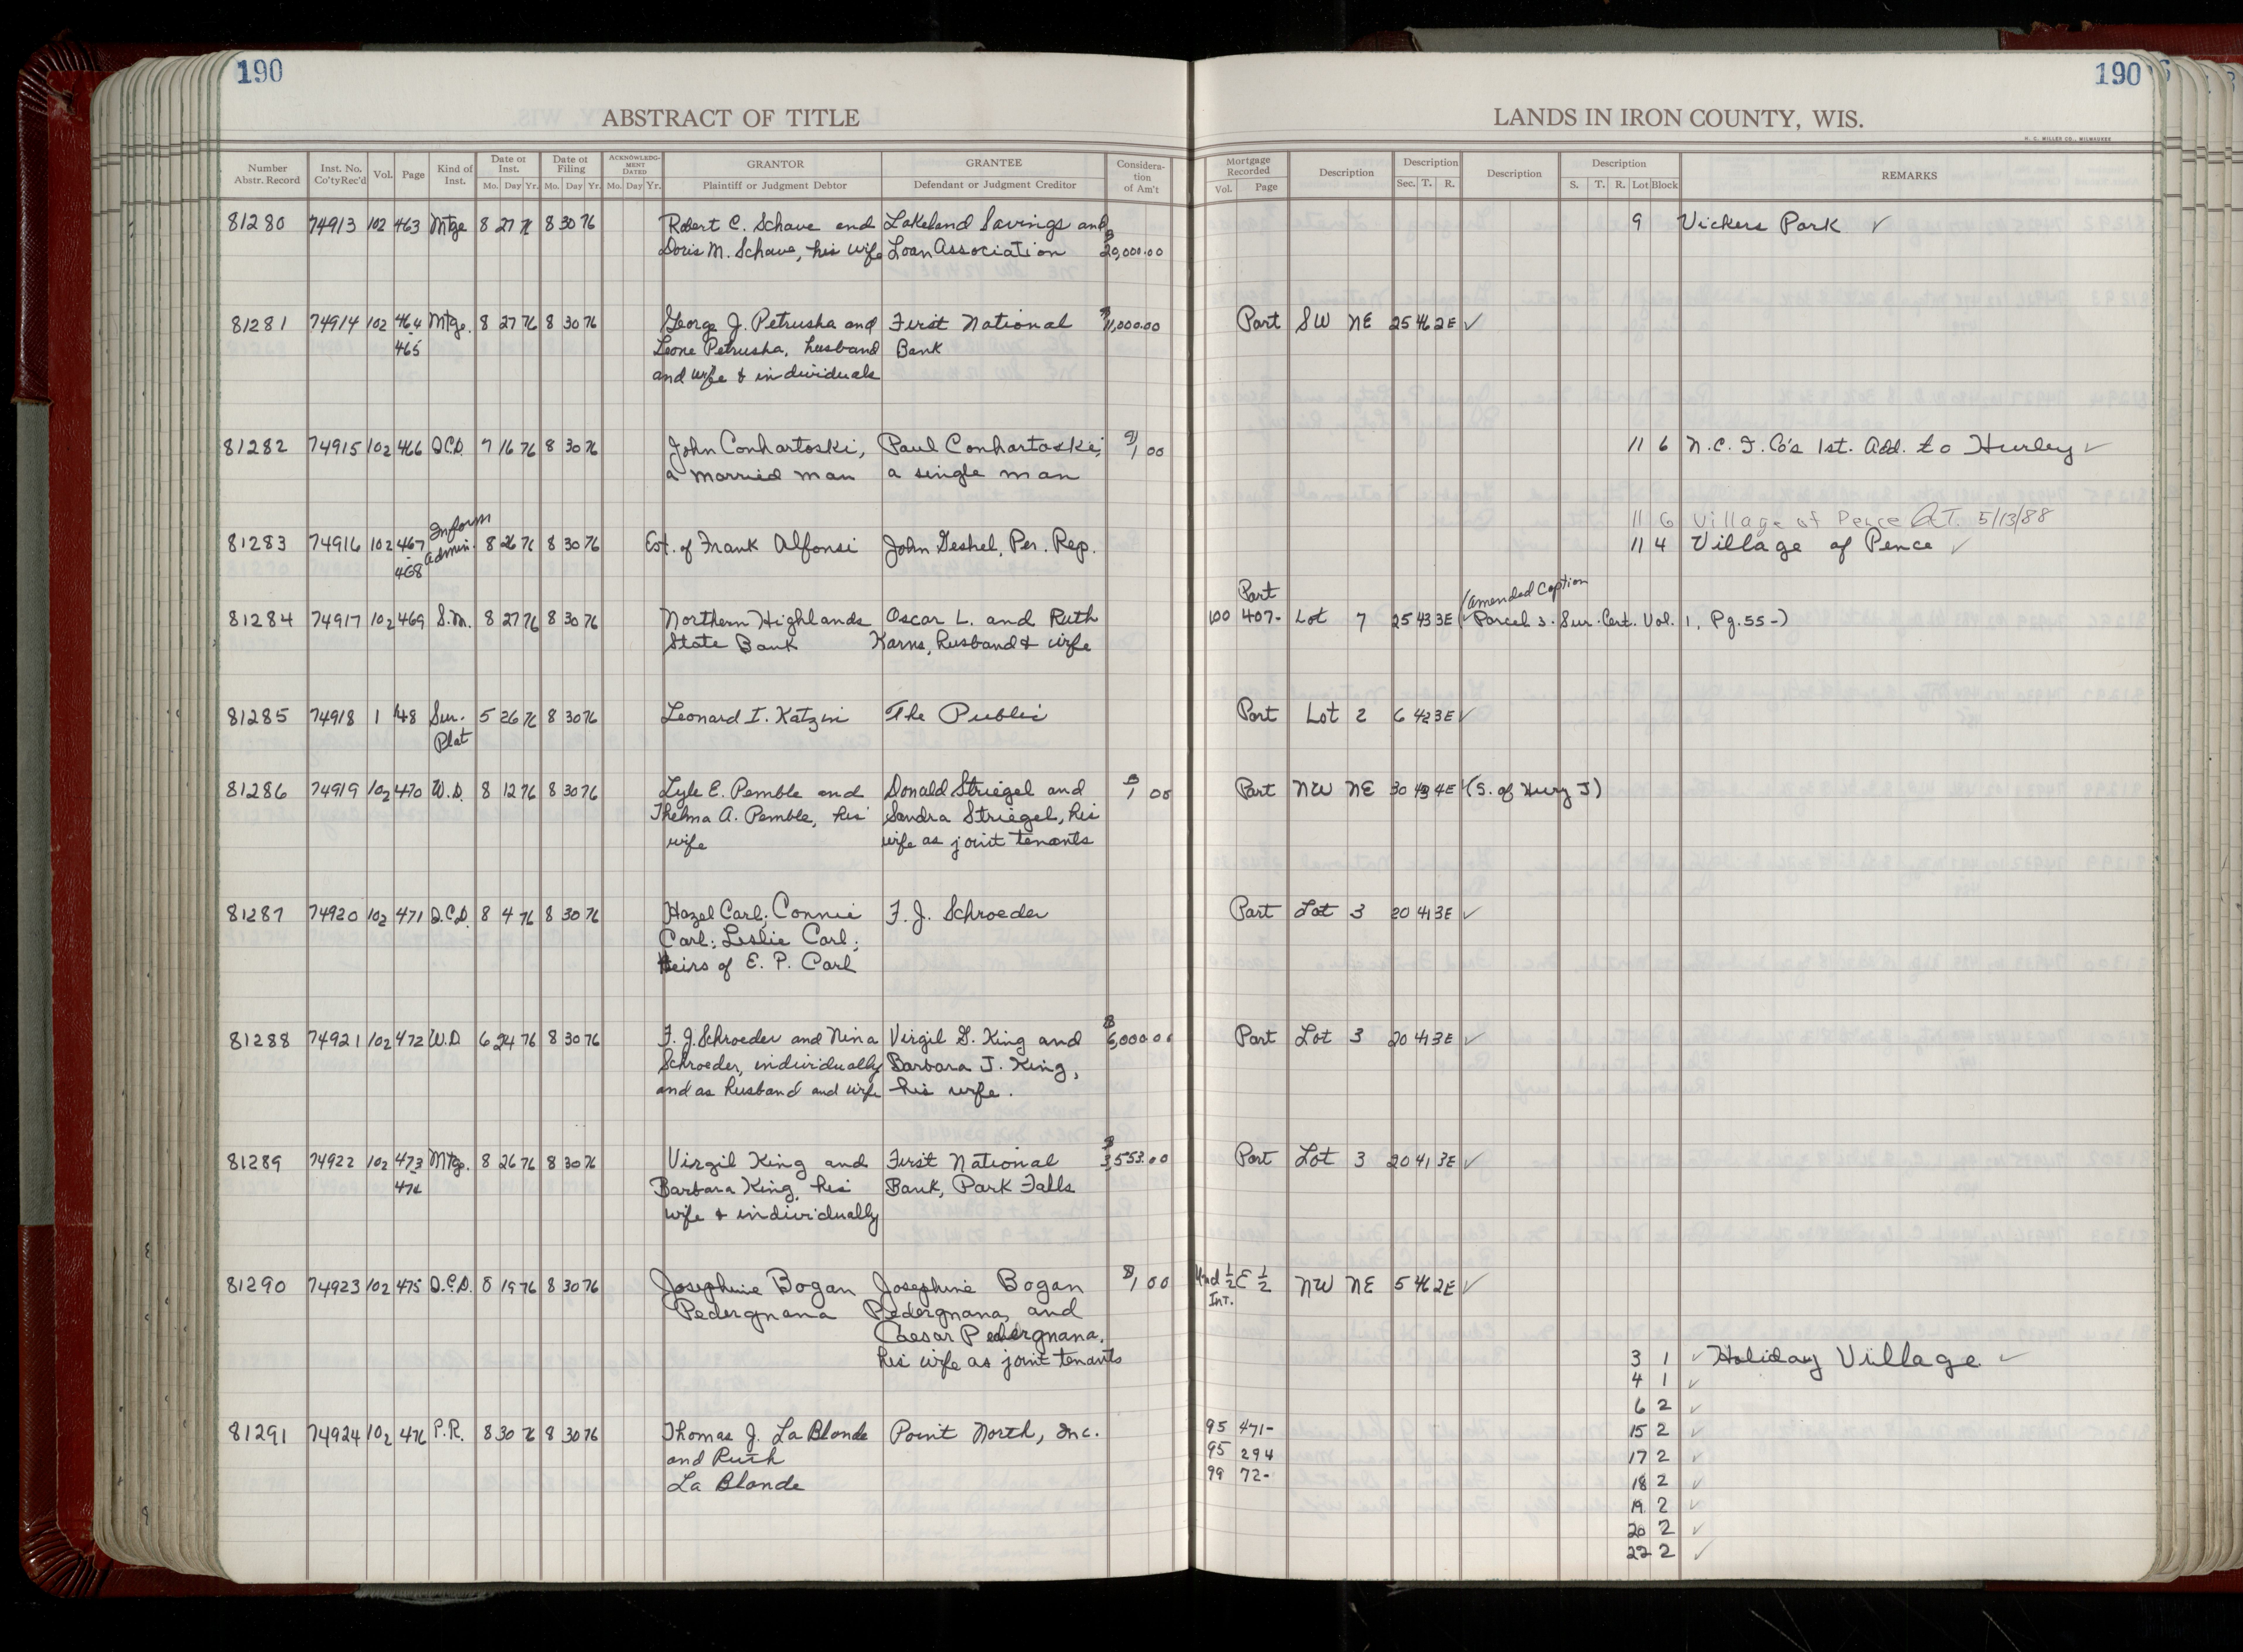 190
190
ABSTRACT OF TITLE
LANDS IN IRON COUNTY, WIS.
H. C. MILLER CO., MILWAUKEE
Number Abstr. Record | Inst. No. Co'ty Rec'd | Vol. | Page | Kind of Inst. | Date of Inst. Mo. Day Yr. | Date of Filing Mo. Day Yr. | ACKNOWLEDGMENT DATED Mo. Day Yr. | GRANTOR Plaintiff or Judgment Debtor | GRANTEE Defendant or Judgment Creditor | Consideration of Am't | Mortgage Recorded Vol. Page | Description | Description Sec. T. R. | Description | Description S. T. R. Lot Block | REMARKS
81280 74913 102 463 Mtge 8 27 76 8 30 76 Robert C. Schave and Lakeland Savings and 9 Vickers Park ✓
Doris M. Schave, his wife Loan Association $20,000.00
81281 74914 102 464- Mtge. 8 27 76 8 30 76 George J. Petrusha and First National $11,000.00 Part SW NE 25 46 2E ✓
465 Leone Petrusha, husband Bank
and wife & individuals
81282 74915 102 466 Q.C.D. 7 16 76 8 30 76 John Conhartoski, Paul Conhartoski, $1 00 11 6 N.C.I. Co's 1st. Add. to Hurley ✓
a married man a single man
11 6 Village of Pence 5/13/88
81283 74916 102 467- Inform Admin. 8 26 76 8 30 76 Est. of Frank Alfonsi John Geshel, Per. Rep. 11 4 Village of Pence ✓
468
Part (Amended Caption
81284 74917 102 469 S.M. 8 27 76 8 30 76 Northern Highlands Oscar L. and Ruth 100 407- Lot 7 25 43 3E ✓ Parcel 3. Sur. Cert. Vol. 1, Pg. 55-)
State Bank Karns, husband & wife
81285 74918 1 148 Sur. 5 26 76 8 30 76 Leonard I. Katzin The Public Part Lot 2 6 42 3E ✓
Plat
81286 74919 102 470 W.D. 8 12 76 8 30 76 Lyle E. Pemble and Donald Striegel and $1 00 Part NW NE 30 43 4E ✓ (S. of Hwy J)
Thelma A. Pemble, his Sandra Striegel, his
wife wife as joint tenants
81287 74920 102 471 Q.C.D. 8 4 76 8 30 76 Hazel Carl; Connie F. J. Schroeder Part Lot 3 20 41 3E ✓
Carl; Leslie Carl;
Heirs of E. P. Carl
81288 74921 102 472 W.D. 6 24 76 8 30 76 F. J. Schroeder and Nina Virgil G. King and $6,000.00 Part Lot 3 20 41 3E ✓
Schroeder, individually Barbara J. King,
and as husband and wife his wife.
81289 74922 102 473 Mtge. 8 26 76 8 30 76 Virgil King and First National $3,553.00 Part Lot 3 20 41 3E ✓
474 Barbara King, his Bank, Park Falls
wife & individually
81290 74923 102 475 Q.C.D. 8 19 76 8 30 76 Josephine Bogan Josephine Bogan $1 00 Und 1/2 Int. E 1/2 NW NE 5 46 2E ✓
Pedergnana Pedergnana, and
Caesar Pedergnana,
his wife as joint tenants
3 1 ✓ Holiday Village ✓
4 1 ✓
6 2 ✓
81291 74924 102 476 P.R. 8 30 76 8 30 76 Thomas J. La Blonde Point North, Inc. 95 471- 15 2 ✓
and Ruth 95 294 17 2 ✓
La Blonde 99 72- 18 2 ✓
19 2 ✓
20 2 ✓
22 2 ✓